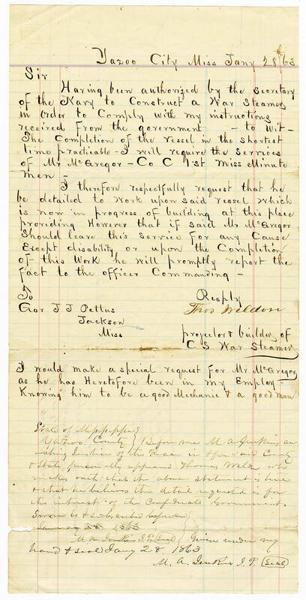 Yazoo City Miss Jany 28 63
Sir
Having been authorized by the Secretary
of the Navy to Construct a War Steamer
in order to Comply with my instructions
received from the government - to Wit -
The Completion of the Vessel in the shortest
time practicable - I will require the Services
of Mr McGregor - Co C 1st Miss Minute
men -
I therefore respectfully request that he
be detailed to work upon said vessel which
is now in progress of building at this place
providing However that if said Mr McGregor
should leave this service for any Cause
Except disability or upon the Completion
of this Work he will promptly report the
fact to the officer Commanding -
To Resply
Gov J J Pettus Thos Weldon
Jackson
Miss projector & builder of
C S War Steamer
I would make a special request for Mr McGregor
as he has Heretofore been in my Employ
Knowing him to be a good Mechanic & a good man
State of Mississippi
Yazoo County } Before me M A Jenkins an
acting Justice of the Peace in & for said County
& State, personally appeared Thomas Weldon who
makes oath that the above statement is true
that he believes the detail requested is for
the interest of the Confederate Government.
Sworn to & subscribed before
January 28 1863
Given under my
hand & seal Jany 28, 1863
M. A. Jenkins J. P. (Seal)